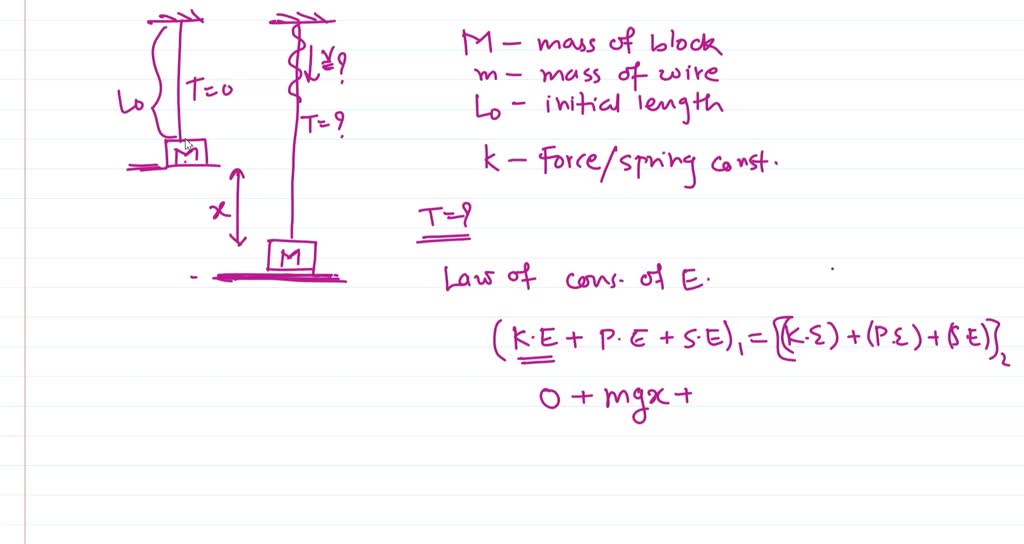 M – mass of block
m – mass of wire
L₀ – initial length
k – Force/spring const.
L₀
T=0
M
x
v=?
T=?
M
T=?
Law of cons. of E.
(K.E + P.E + S.E)₁ = [(K.E) + (P.E) + (S.E)]₂
0 + mgx +